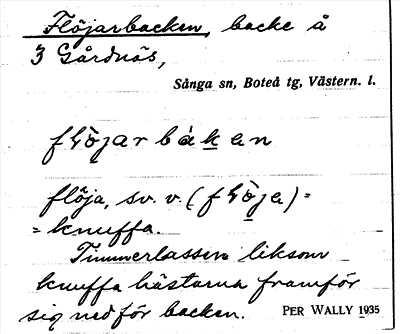 Flöjarbacken, backe å
3 Gårdnäs,
Sånga sn, Boteå tg, Västern. l.
flöjar båkan
flöja, sv. v. (flöja) =
= knuffa.
Timmerlassen liksom
knuffa hästarna framför
sig nedför backen. PER WALLY 1935